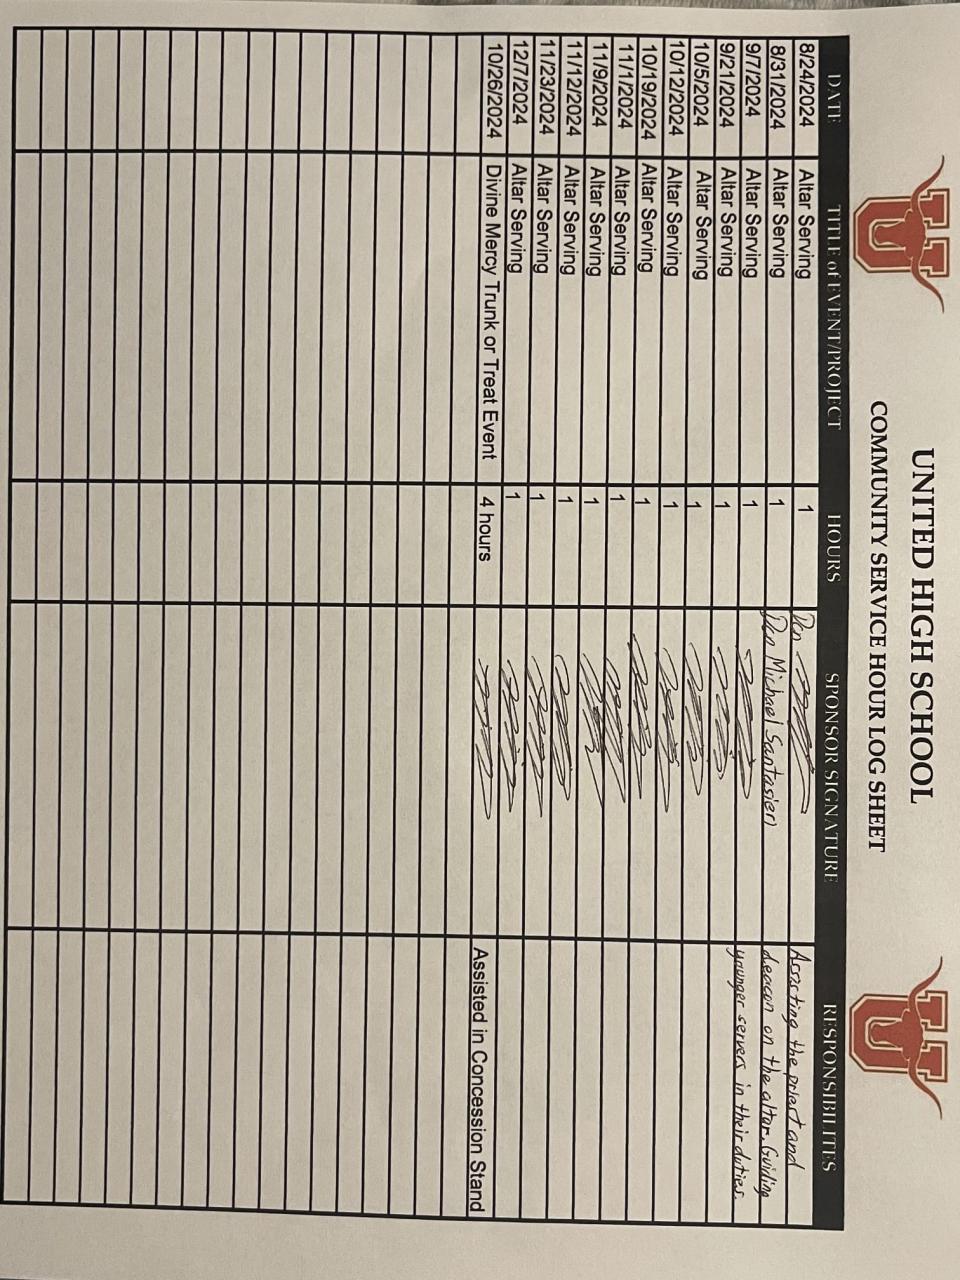 UNITED HIGH SCHOOL
COMMUNITY SERVICE HOUR LOG SHEET
DATE TITLE of EVENT/PROJECT HOURS SPONSOR SIGNATURE RESPONSIBILITES
8/24/2024 Altar Serving 1 Dcn Assisting the priest and
8/31/2024 Altar Serving 1 Dcn Michael Santasieri deacon on the altar. Guiding
9/7/2024 Altar Serving 1 younger servers in their duties.
9/21/2024 Altar Serving 1
10/5/2024 Altar Serving 1
10/12/2024 Altar Serving 1
10/19/2024 Altar Serving 1
11/1/2024 Altar Serving 1
11/9/2024 Altar Serving 1
11/12/2024 Altar Serving 1
11/23/2024 Altar Serving 1
12/7/2024 Altar Serving 1
10/26/2024 Divine Mercy Trunk or Treat Event 4 hours Assisted in Concession Stand